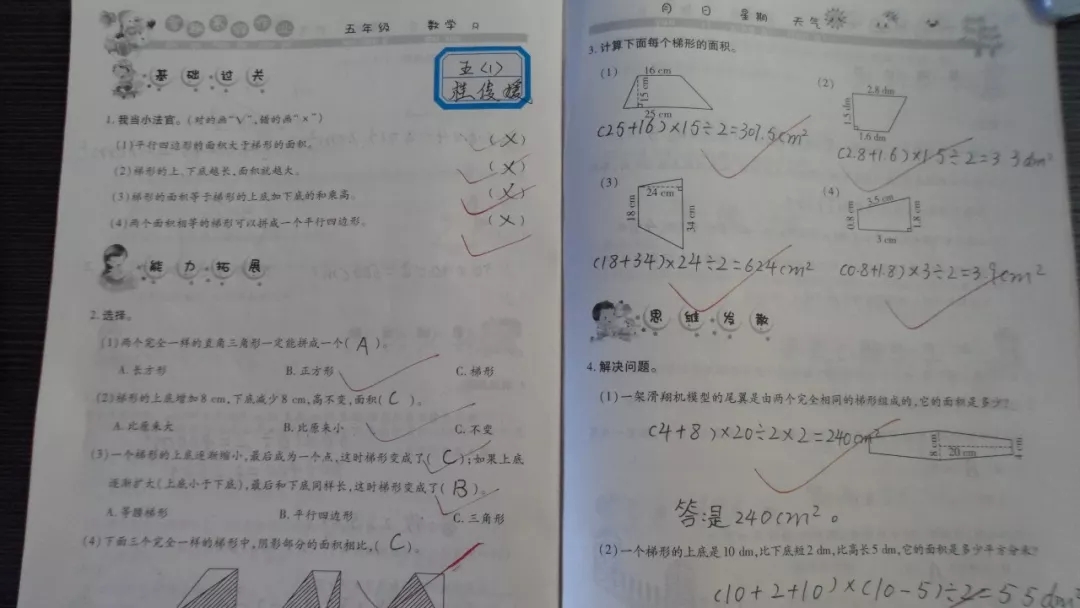 五年级 数学 R
五(1)
桂俊媛
基础过关
1.我当小法官。(对的画“√”,错的画“×”)
(1)平行四边形的面积大于梯形的面积。 (×)
(2)梯形的上、下底越长,面积就越大。 (×)
(3)梯形的面积等于梯形的上底加下底的和乘高。 (×)
(4)两个面积相等的梯形可以拼成一个平行四边形。 (×)
能力拓展
2.选择。
(1)两个完全一样的直角三角形一定能拼成一个( A )。
A.长方形 B.正方形 C.梯形
(2)梯形的上底增加8 cm,下底减少8 cm,高不变,面积( C )。
A.比原来大 B.比原来小 C.不变
(3)一个梯形的上底逐渐缩小,最后成为一个点,这时梯形变成了( C );如果上底
逐渐扩大(上底小于下底),最后和下底同样长,这时梯形变成了( B )。
A.等腰梯形 B.平行四边形 C.三角形
(4)下面三个完全一样的梯形中,阴影部分的面积相比,( C )。
月 日 星期 天气
3.计算下面每个梯形的面积。
(1) 16 cm
15 cm
25 cm
(25+16)×15÷2=307.5cm²
(2) 2.8 dm
1.5 dm
1.6 dm
(2.8+1.6)×1.5÷2=3.3dm²
(3)
24 cm
18 cm
34 cm
(18+34)×24÷2=624cm²
(4)
3.5 cm
0.8 cm
1.8 cm
3 cm
(0.8+1.8)×3÷2=3.9cm²
思维发散
4.解决问题。
(1)一架滑翔机模型的尾翼是由两个完全相同的梯形组成的,它的面积是多少?
(4+8)×20÷2×2=240cm²
8 cm
20 cm
4 cm
答:是240cm²。
(2)一个梯形的上底是10 dm,比下底短2 dm,比高长5 dm,它的面积是多少平方分米?
(10+2+10)×(10-5)÷2=55dm²